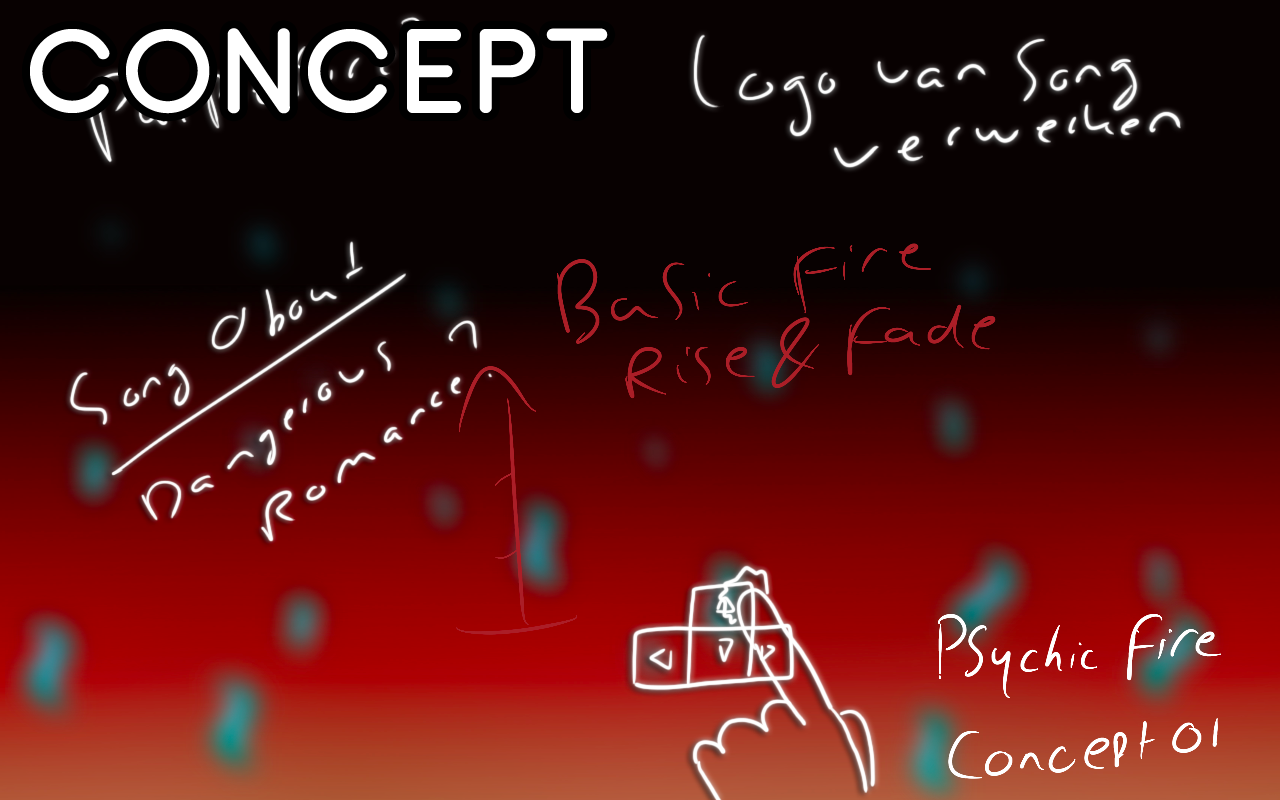 CONCEPT
Logo van Song
verwerken
Song About
Dangerous
Romance?
Basic Fire
Rise & Fade
Psychic Fire
Concept 01